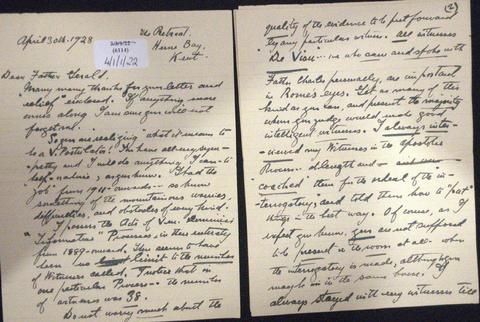 April 30th. 1928
The Retreat.
Herne Bay.
Kent.
(6114)
4/1/1/22
Dear Father Gerald.
Many many thanks for your letter and
"relief" enclosed. If anything more
comes along I am sure you will not
forget me.
So you are realizing what it means to
be a V. Postulator! You have all my sym-
pathy and I will do anything I can to
help - naturally, as you know. I had the
"job" from 1911 - onwards - so know
something of the mountainous worries
difficulties, and obstacles of every kind.
I possess the Acts of Ven. Dominic's
"Informative" Processes, in their entirety
from 1889 - onward. There seems to have
been no limit to the number
of Witnesses called. I notice that in
one particular Process - the number
of witnesses was 38.
Do not worry much about the
(2)
quality of the evidence to be put forward
by any particular witness. All witnesses
"De Visu" - i.e. who saw and spoke with
Father Charles personally, are important
in Rome's eyes. Get as many of this
kind as you can, and present the majority
whom you judge would make good
intelligent witnesses. I always inter-
viewed my Witnesses in the Apostolic
Process - at length and -
coached them for the ordeal of the in-
terrogatory, and told them how to "put"
things in the best way. Of course, as I
expect you know, you are not suffered
to be present in the room at all - when
the interrogatory is made, although you
may be in the same house. I
always stayed with my witnesses till